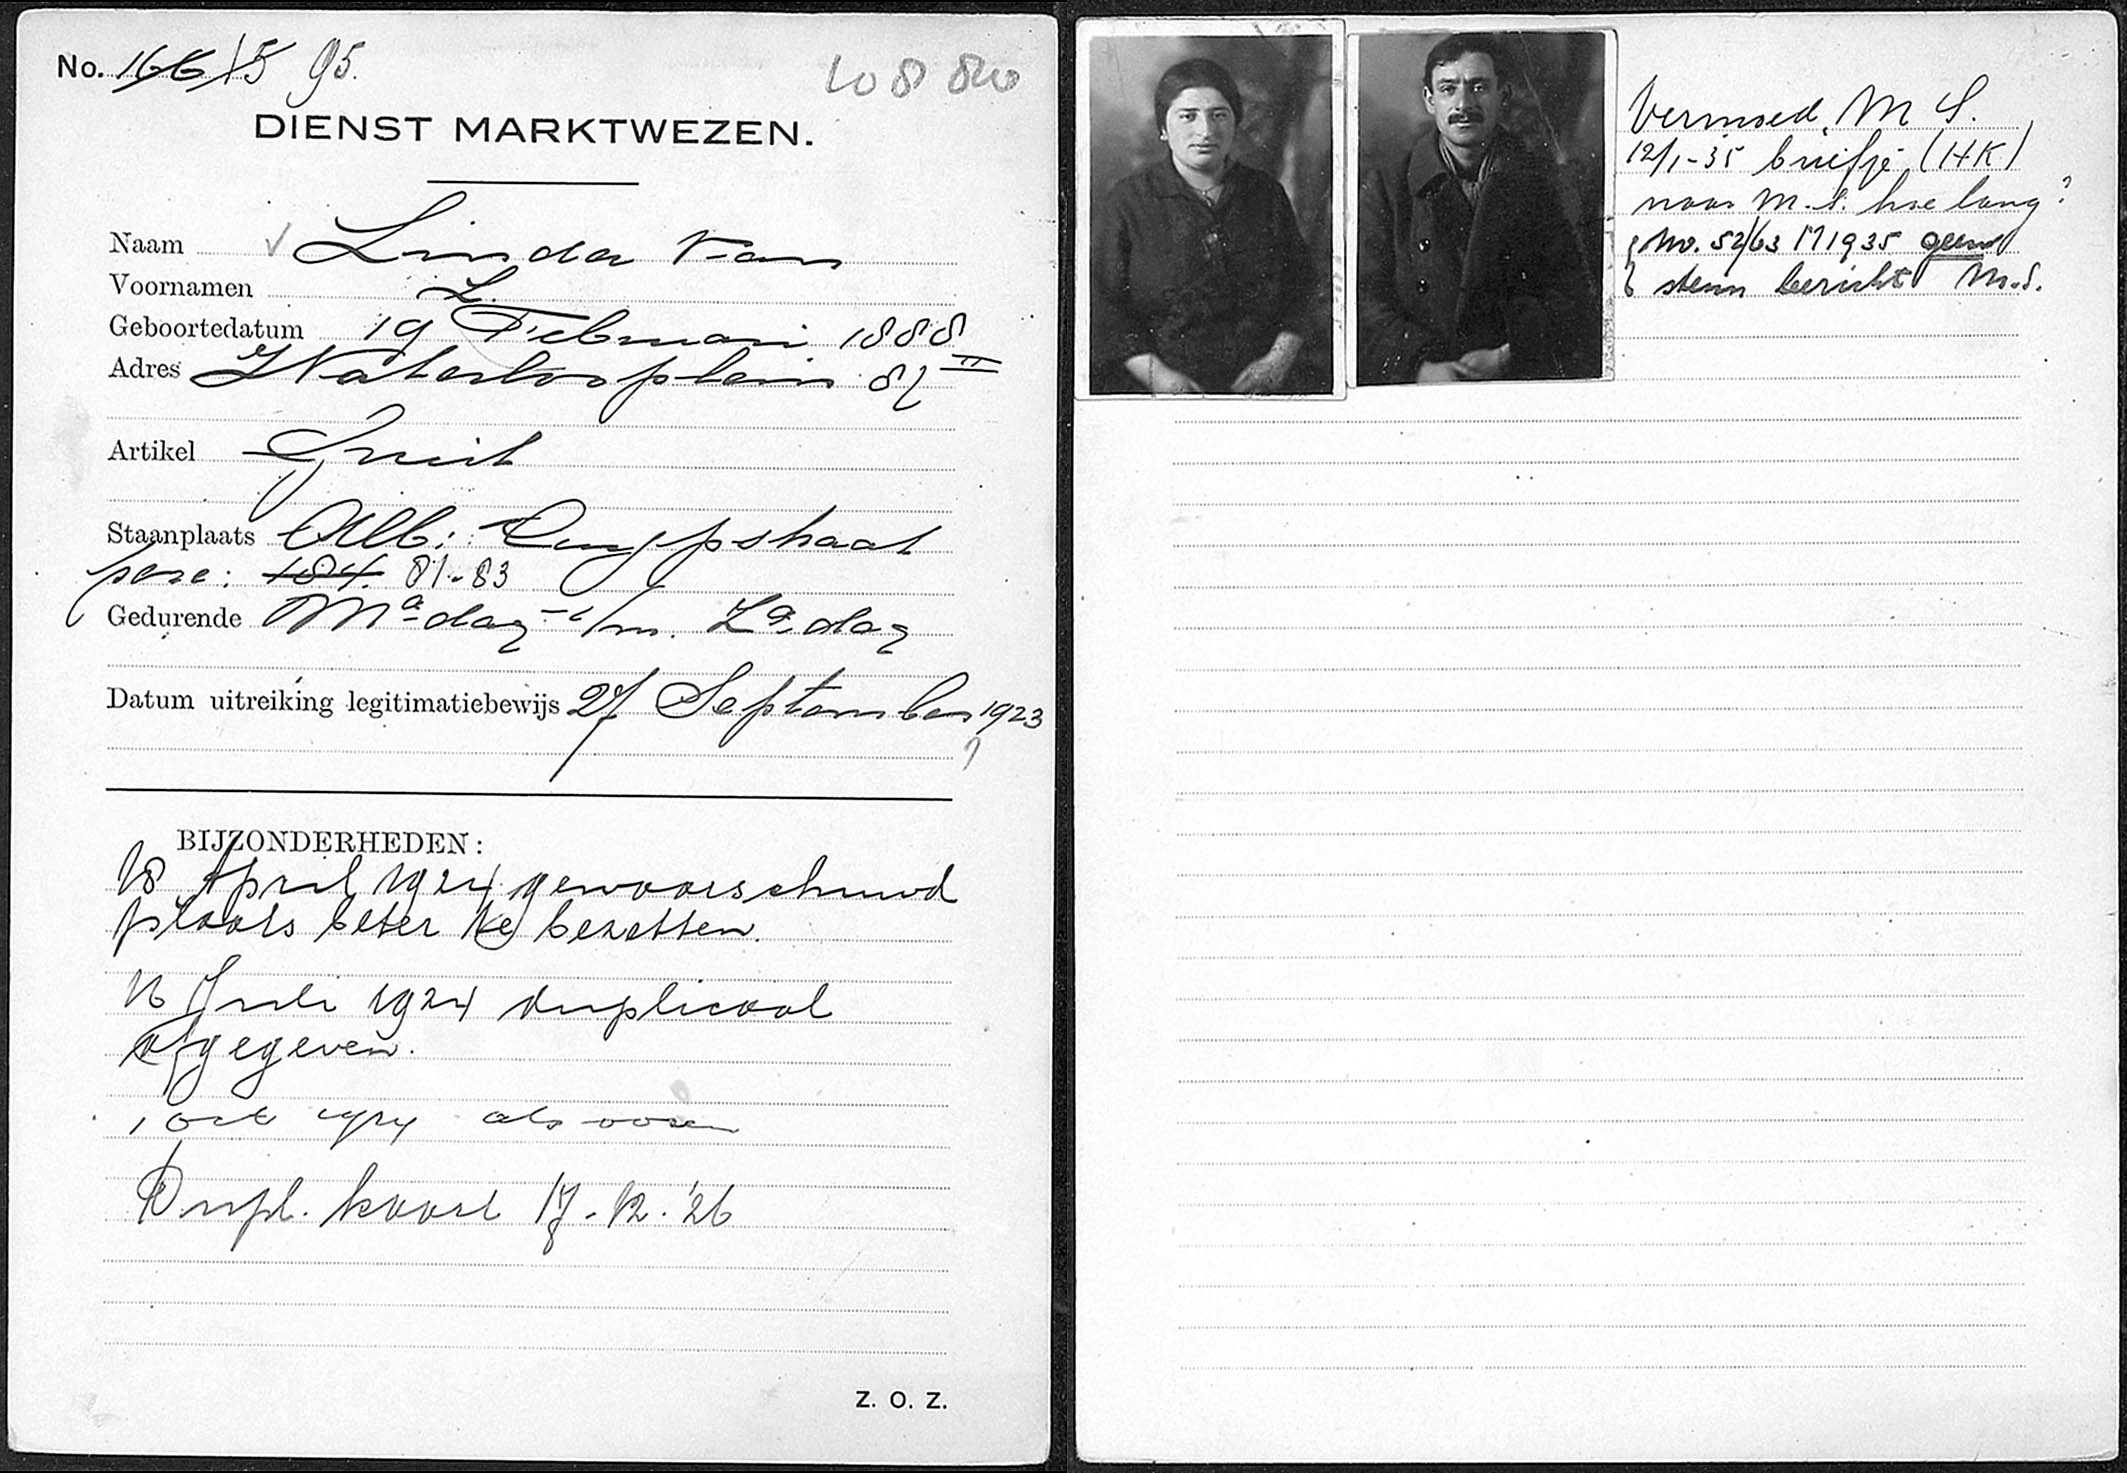 No. 166 15 95.
DIENST MARKTWEZEN.
Naam Linda van
Voornamen L.
Geboortedatum 19 Februari 1888
Adres Waterlooplein 82 II
Artikel Fruit
Staanplaats Alb: Cuypstraat
perc: 184. 81-83
Gedurende Ma-dag t/m. Za-dag
Datum uitreiking legitimatiebewijs 27 September 1923
BIJZONDERHEDEN:
18 April 1924 gewaarschuwd
plaats beter te bezetten.
16 Juli 1924 duplicaat
afgegeven.
1 oct 1924 als voren
Dupl. kaart 17-12-'26
Z. O. Z.
M S.
12/1-35 briefje (HK)
naar M.S. hoe lang?
No. 52/63 M 1935 geen
steun bericht M.S.